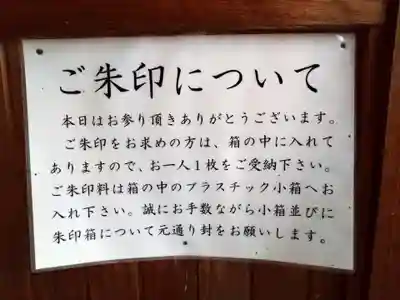 ご朱印について
本日はお参り頂きありがとうございます。
ご朱印をお求めの方は、箱の中に入れて
ありますので、お一人１枚をご受納下さい。
ご朱印料は箱の中のプラスチック小箱へお
入れ下さい。誠にお手数ながら小箱並びに
朱印箱について元通り封をお願いします。